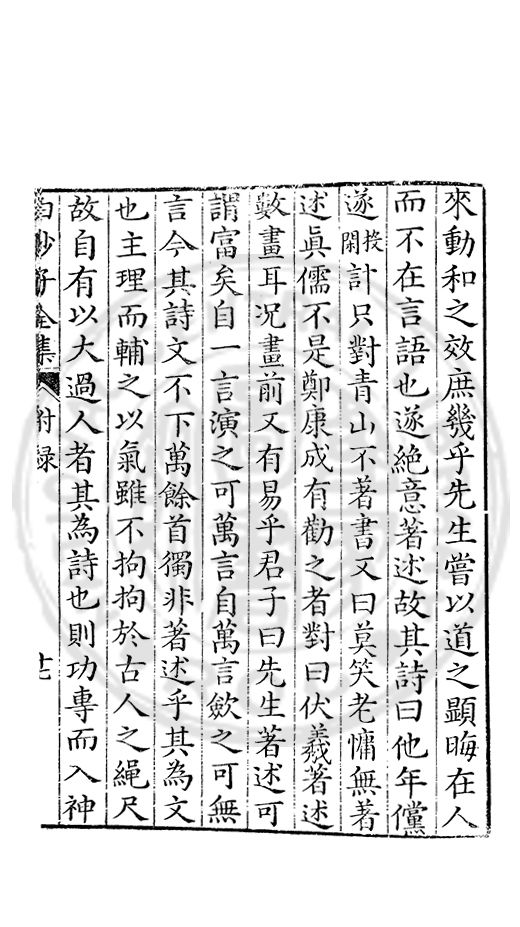 來動和之效庶幾乎先生嘗以道之顯晦在人
而不在言語也遂絶意著述故其詩曰他年儻
遂投閑計只對青山不著書又曰莫笑老慵無著
述真儒不是鄭康成有勸之者對曰伏羲著述
數畫耳况畫前又有易乎君子曰先生著述可
謂富矣自一言演之可萬言自萬言斂之可無
言今其詩文不下萬餘首獨非著述乎其為文
也主理而輔之以氣雖不拘拘於古人之繩尺
故自有以大過人者其為詩也則功專而入神
白沙子全集 附録 十七